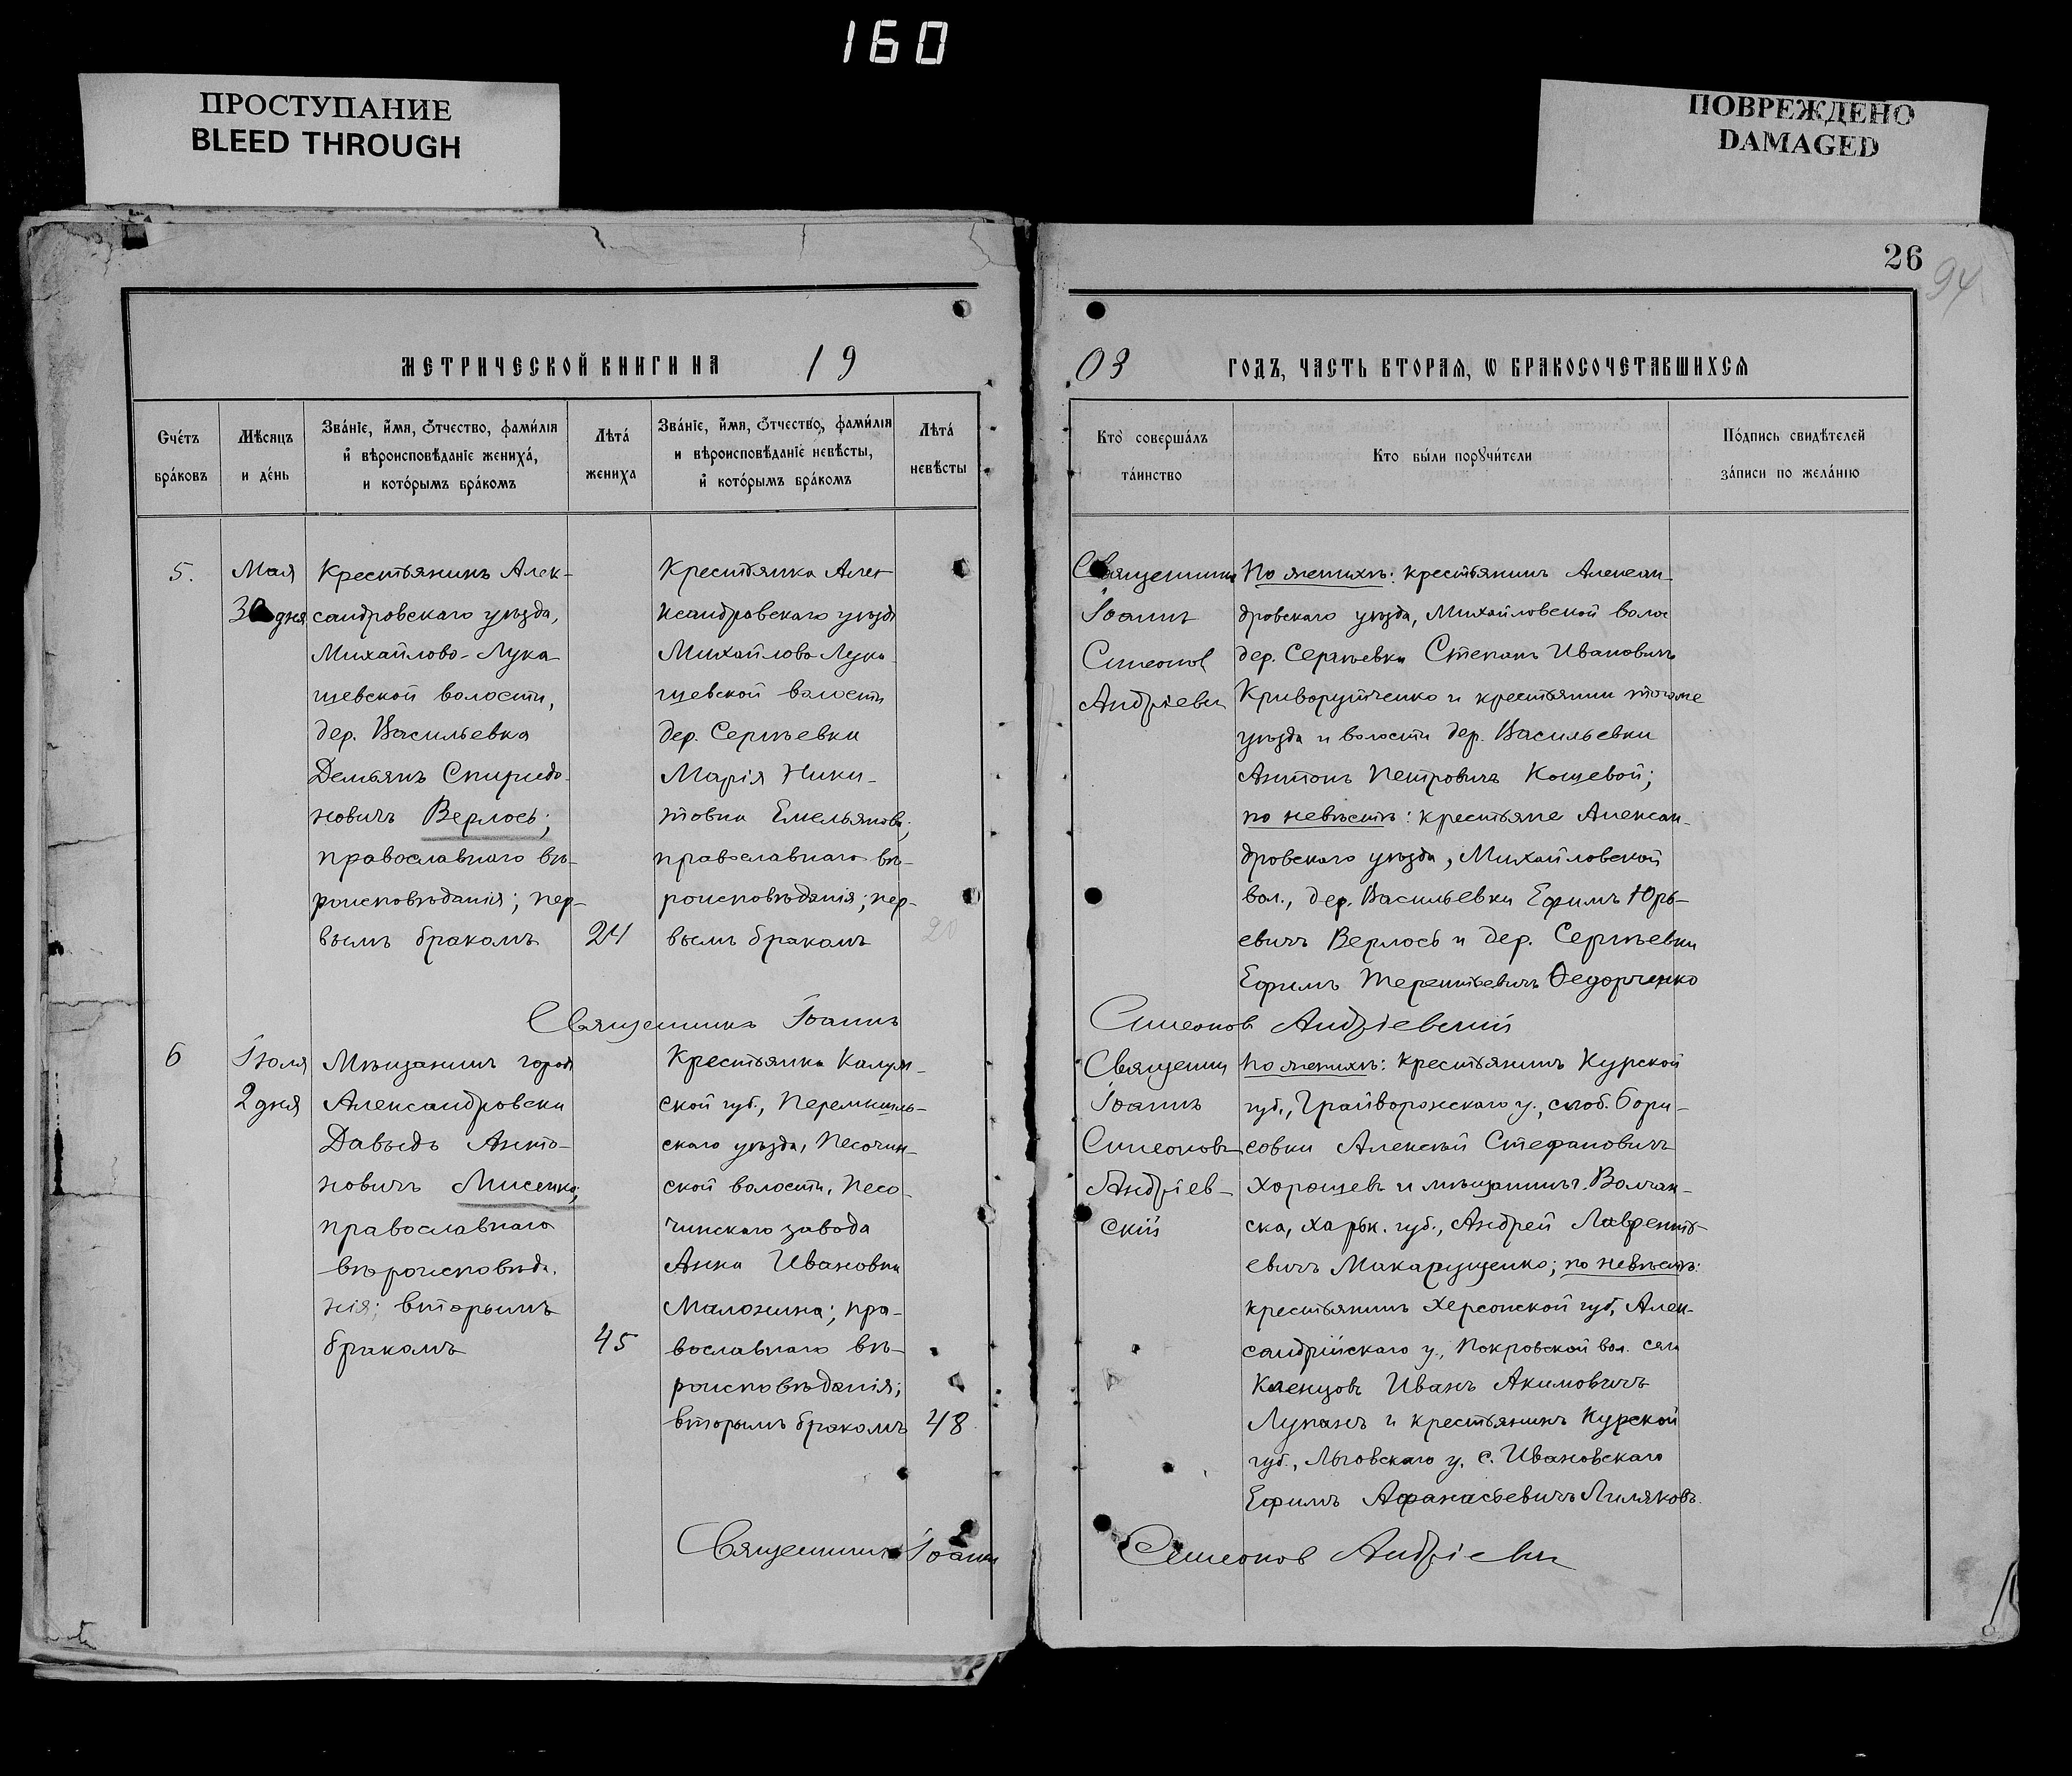 160
ПРОСТУПАНИЕ
BLEED THROUGH
ПОВРЕЖДЕНО
DAMAGED
26
94
МЕТРИЧЕСКОЙ КНИГИ НА 19
03 ГОДЪ, ЧАСТЬ ВТОРАЯ, Ѡ БРАКОСОЧЕТАВШИХСЯ
Счетъ
браковъ
Мѣсяцъ
и день
Званіе, имя, отчество, фамилія
и вѣроисповѣданіе жениха,
и которымъ бракомъ
Лѣта
жениха
Званіе, имя, отчество, фамилія
и вѣроисповѣданіе невѣсты,
и которымъ бракомъ
Лѣта
невѣсты
Кто совершалъ
таинство
Кто были поручители
Подпись свидѣтелей
записи по желанію
5.
Мая
30 дня
Крестьянинъ Алек-
сандровскаго уѣзда,
Михайлово-Лука-
шевской волости,
дер. Васильевка
Демьянъ Спиридо-
новичъ Верлось;
православнаго вѣ-
роисповѣданія; пер-
вымъ бракомъ
24
Крестьянка Алек
ксандровскаго уѣзда
Михайлово-Лука-
шевской волости
дер. Сергѣевки
Марія Ники-
товна Емельянова;
православнаго вѣ-
роисповѣданія; пер-
вымъ бракомъ
20
Священникъ
Іоаннъ
Симеонов
Андріевск
По женихѣ: крестьянинъ Алексан-
дровскаго уѣзда, Михайловской волос
дер. Сергѣевки Степанъ Ивановичъ
Криворутченко и крестьянин тогоже
уѣзда и волости дер. Васильевки
Антонъ Петровичъ Кошевой;
по невѣстѣ: крестьяне Алексан-
дровскаго уѣзда, Михайловской
вол., дер. Васильевки Ефимъ Юрь-
евичъ Верлось и дер. Сергѣевки
Ефимъ Терентьевичъ Федорченко
Священникъ Іоаннъ
Симеонов Андріевский
6
Іюля
2 дня
Мѣщанинъ города
Александровска
Давыдъ Анто-
новичъ Мисенко;
православнаго
вѣроисповѣда-
нія; вторымъ
бракомъ
45
Крестьянка Калуж-
ской губ., Перемышль-
скаго уѣзда, Песочин-
ской волости, Песо-
чинскаго завода
Анна Ивановна
Малонина; пра-
вославнаго вѣ-
роисповѣданія;
вторымъ бракомъ
48
Священни
Іоаннъ
Симеоновъ
Андріев-
скій
По женихѣ: Крестьянинъ Курской
губ., Грайворонскаго у., слоб. Бори-
совки Алексѣй Стефановичъ
Хорошевъ и мѣщанинъ г. Волчан-
ска, Харьк. губ., Андрей Лавренть-
евичъ Макарущенко; по невѣстѣ:
крестьянинъ Херсонской губ., Алек-
сандрійскаго у., Покровской вол. села
Кленцовъ Иванъ Акимовичъ
Лупанъ и крестьянинъ Курской
губ., Льговскаго у. с. Ивановскаго
Ефимъ Афанасьевичъ Лиляковъ.
Священникъ Іоанн
Симеонов Андріевск